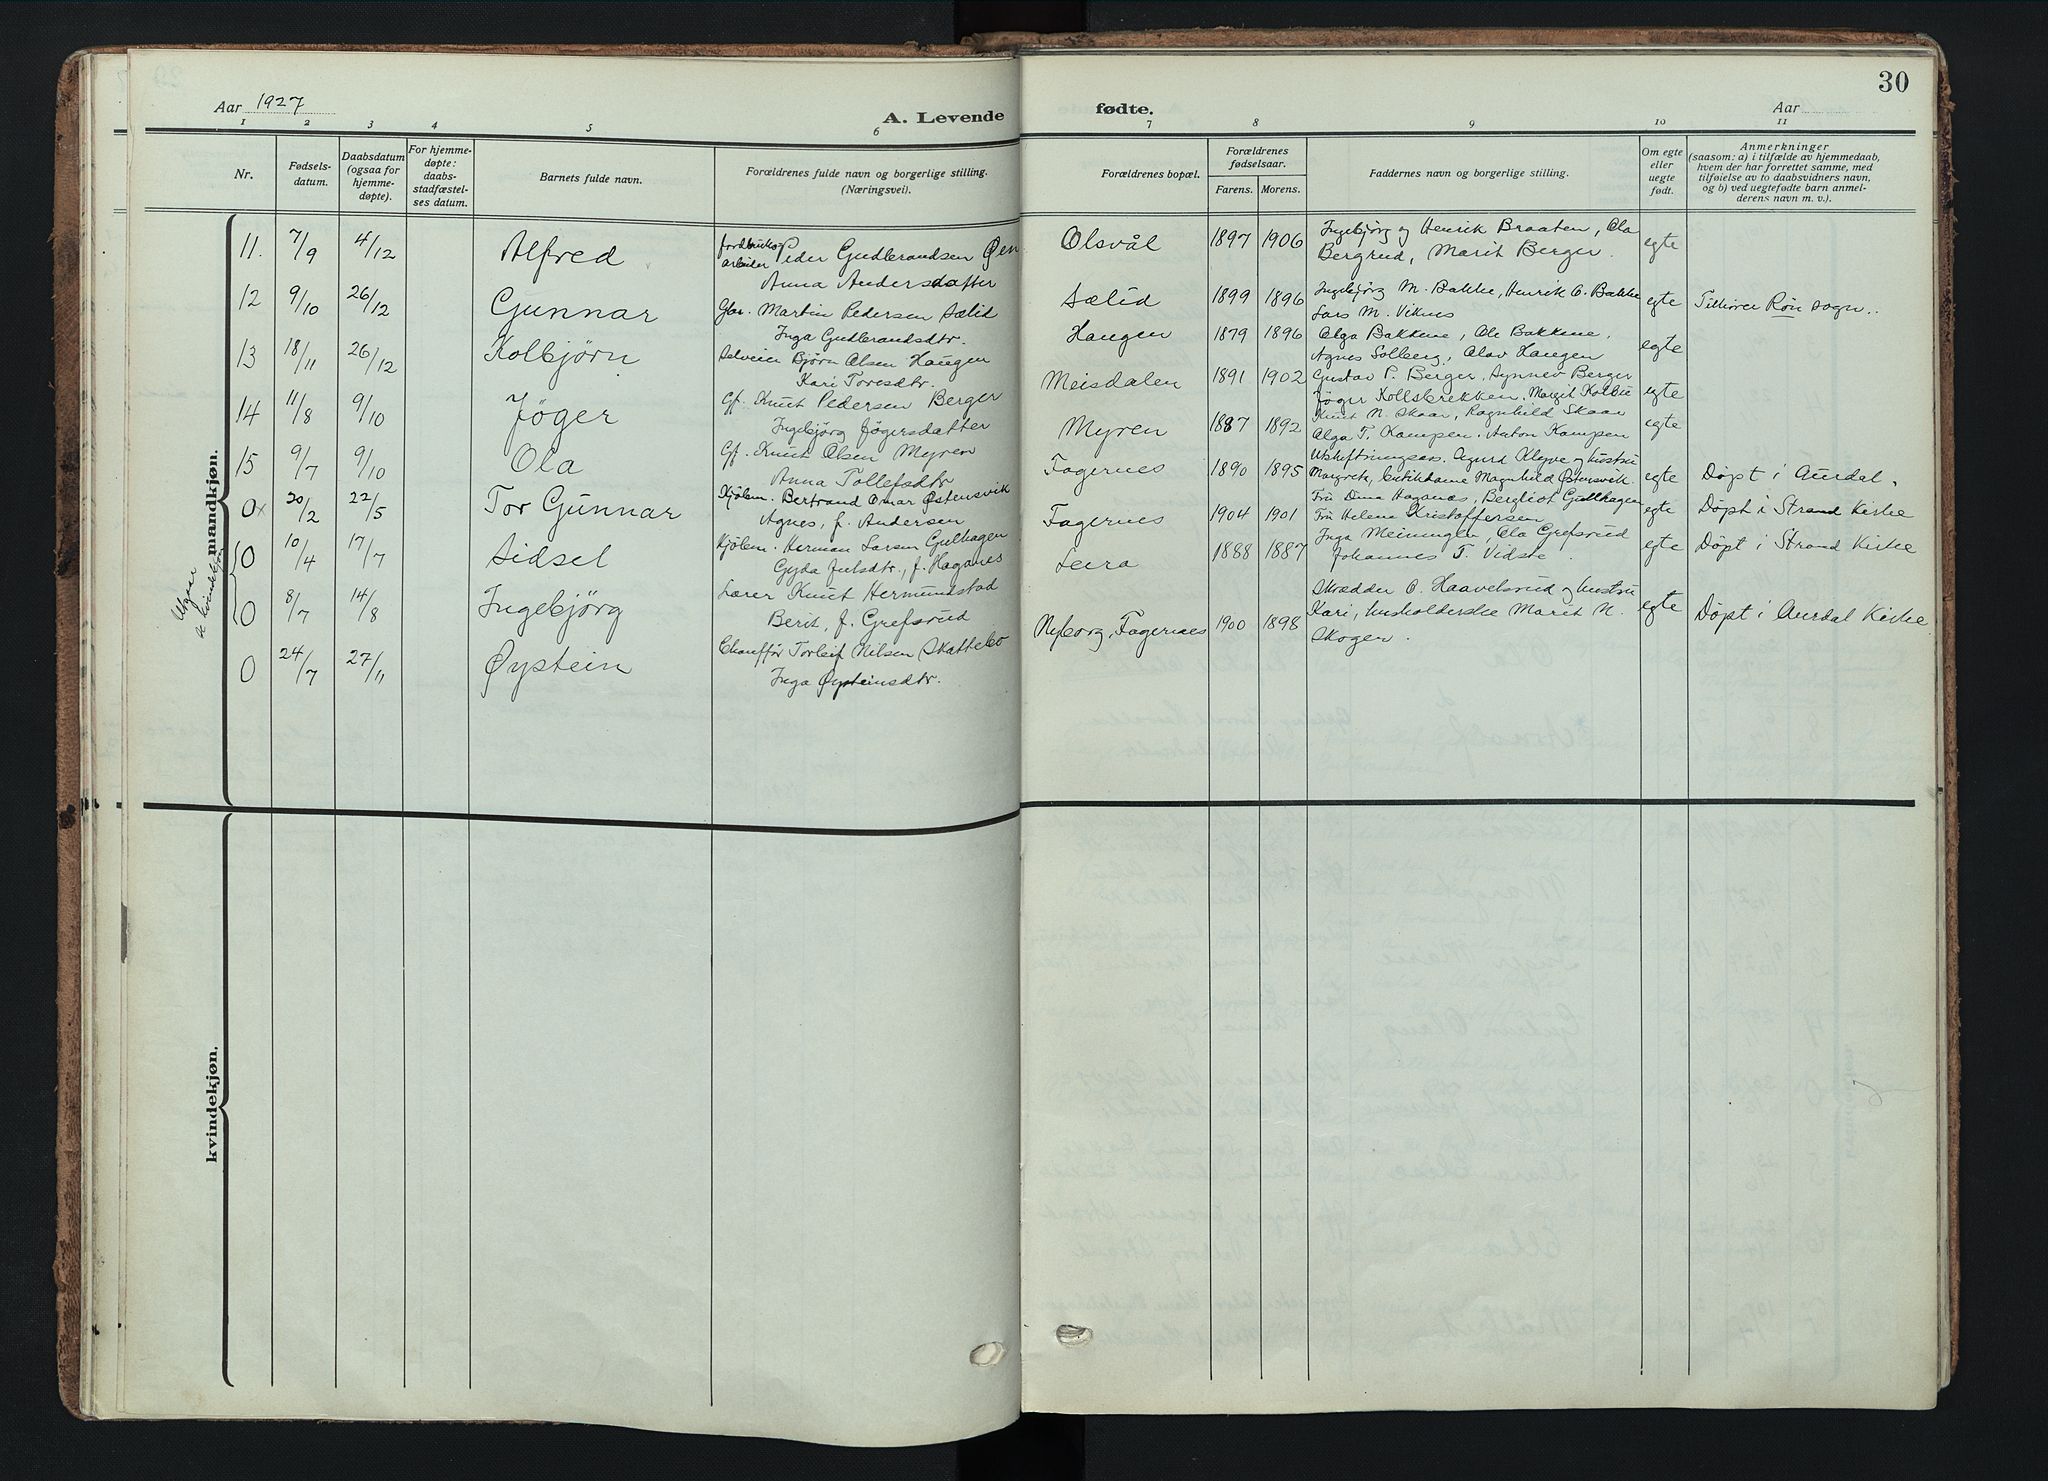 Aar 1927
A. Levende
1 2 3 4 5 6
Nr.
Fødsels-
datum.
Daabsdatum
(ogsaa for
hjemme-
døpte).
For hjemme-
døpte:
daabs-
stadfæstel-
ses datum.
Barnets fulde navn.
Forældrenes fulde navn og borgerlige stilling.
(Næringsvei).
mandkjøn.
11. 7/9 4/12 Alfred
arbeider Peder Gudbrandsen Øen
Anna Andersdatter
12 9/10 26/12 Gunnar
Martin Pedersen Sælid
Inga Gudbrandsdtr.
13 18/11 26/12 Kolbjørn
Selveier Bjørn Olsen Haugen
Kari Toresdtr.
14 11/8 9/10 Jøger
Gf. Knut Pedersen Berger
Ingebjørg Jøgersdatter
15 9/7 9/10 Ola
Gf. Knut Olsen Myren
Anna Tollefsdtr
0x 20/2 22/5 Tor Gunnar
Kjøbm. Bertrand Omar Østensvik
Agnes, f. Andersen
0 10/4 17/7 Sidsel
Kjøbm. Herman Larsen Gulhagen
Gyda Julsdtr., f. Haganes
0 8/7 14/8 Ingebjørg
Lærer Knut Hermundstad
Berit, f. Grefsrud
0 24/7 27/11 Øystein
Chauffør Torleif Nilsen Skattebo
Inga Øysteinsdtr.
kvindekjøn
kvindekjøn.
30
fødte.
Aar
7 8 9 10 11
Forældrenes bopæl.
Forældrenes
fødselsaar.
Farens. Morens.
Faddernes navn og borgerlige stilling.
Om egte
eller
uegte
født.
Anmerkninger
(saasom: a) i tilfælde av hjemmedaab,
hvem der har forrettet samme, med
tilføielse av to daabsvidners navn,
og b) ved uegtefødte barn anmel-
derens navn m. v.).
Olsvål 1897 1906
Ingebjørg og Henrik Braaten, Ola
Bergrud, Marit Berger.
egte
Sælid 1899 1896
Ingebjørg M. Bakke, Henrik O. Bakke
Lars M. Viknes
egte Tilhører Røn sogn..
Haugen 1879 1896
Olga Bakkene, Ole Bakkene,
Agnes Solberg, Olav Haugen
egte
Meisdalen 1891 1902
Gustav P. Berger, Synnev Berger
Jøger Kollsbrekken, Margit Kolbu
egte
Myren 1887 1892
Knut N. Skaar, Ragnhild Skaar
Olga T. Kampen, Anton Kampen
egte
Fagernes 1890 1895
Sigurd Kleyve og hustru
Margreta, Magnhild Østensvik
egte Døpt i Aurdal.
Fagernes 1904 1901
Fru Dina Haganes, Bergliot Gulhagen
Fru Helena Kristoffersen
egte Døpt i Strand Kirke
Leira 1888 1887
Inga Meiningen, Ola Grefsrud
Johannes T. Vidste.
egte Døpt i Strand Kirke
Nyborg, Fagernes 1900 1898
Skrædder O. Haavelsrud og hustru
Kari, husholderske Marit N.
Skogen.
egte Døpt i Aurdal Kirke